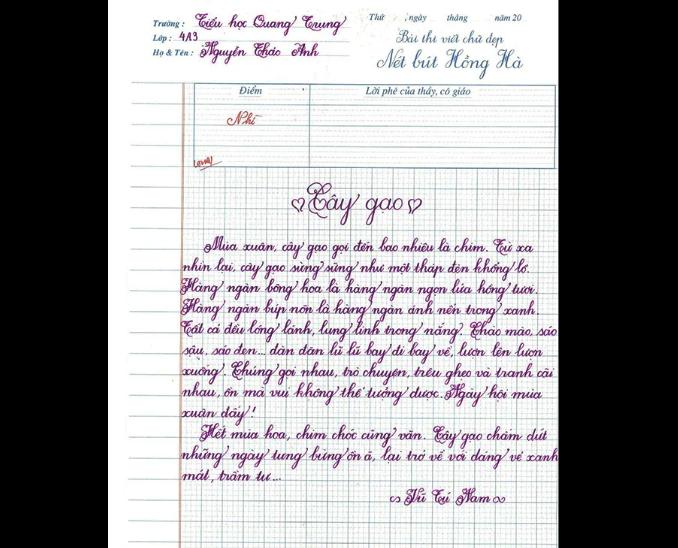 Trường : Tiểu học Quang Trung
Lớp : 4A3
Họ & Tên : Nguyễn Thảo Anh
Thứ , ngày tháng năm 20
Bài thi viết chữ đẹp
Nét bút Hồng Hà
Điểm
Lời phê của thầy, cô giáo
Nhì
Cây gạo
Mùa xuân, cây gạo gọi đến bao nhiêu là chim. Từ xa
nhìn lại, cây gạo sừng sững như một tháp đèn khổng lồ.
Hàng ngàn bông hoa là hàng ngàn ngọn lửa hồng tươi.
Hàng ngàn búp nõn là hàng ngàn ánh nến trong xanh.
Tất cả đều lóng lánh, lung linh trong nắng. Chào mào, sáo
sậu, sáo đen... đàn đàn lũ lũ bay đi bay về, lượn lên lượn
xuống. Chúng gọi nhau, trò chuyện, trêu ghẹo và tranh cãi
nhau, ồn mà vui không thể tưởng được. Ngày hội mùa
xuân đấy !
Hết mùa hoa, chim chóc cũng vãn. Cây gạo chấm dứt
những ngày tưng bừng ồn ã, lại trở về với dáng vẻ xanh
mát, trầm tư...
Vũ Tú Nam